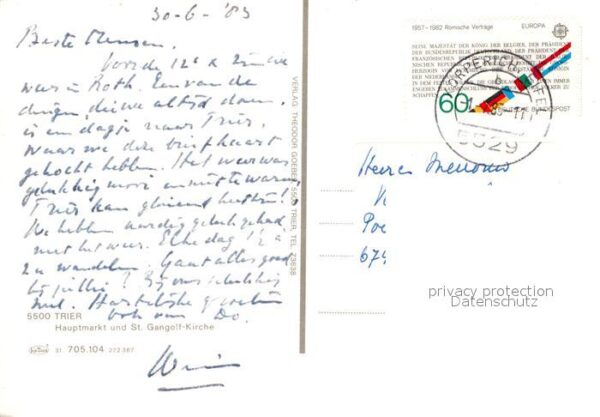 30-6-'83
Beste Mensen,
Voor de 12e x zijn we
weer in Roth. Een van de
dingen die we altijd doen,
is een dagje naar Trier,
waar we deze briefkaart
gekocht hebben. Het weer was
gelukkig mooi
Trier kan gloeiend heet zijn.
We hebben aardig geluk gehad
met het weer. Elke dag
te wandelen. Gaat alles goed
bij jullie? Bij ons gelukkig
wel. Hartelijke groeten
ook van Do.
Wim
5500 TRIER
Hauptmarkt und St. Gangolf-Kirche
31 705.104 272 387
VERLAG THEODOR GOEBEL, 5500 TRIER, TEL. 73638
1957-1982 Römische Verträge EUROPA
SEINE MAJESTÄT DER KÖNIG DER BELGIER, DER PRÄSIDENT
DER BUNDESREPUBLIK DEUTSCHLAND, DER PRÄSIDENT
60
DEUTSCHE BUNDESPOST
5529
Heeren
Poe
679
privacy protection
Datenschutz